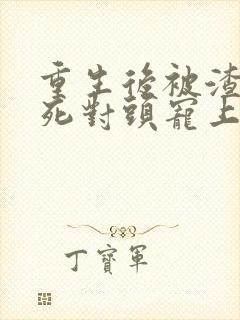 重生後被渣
死對頭寵上
丁寶軍